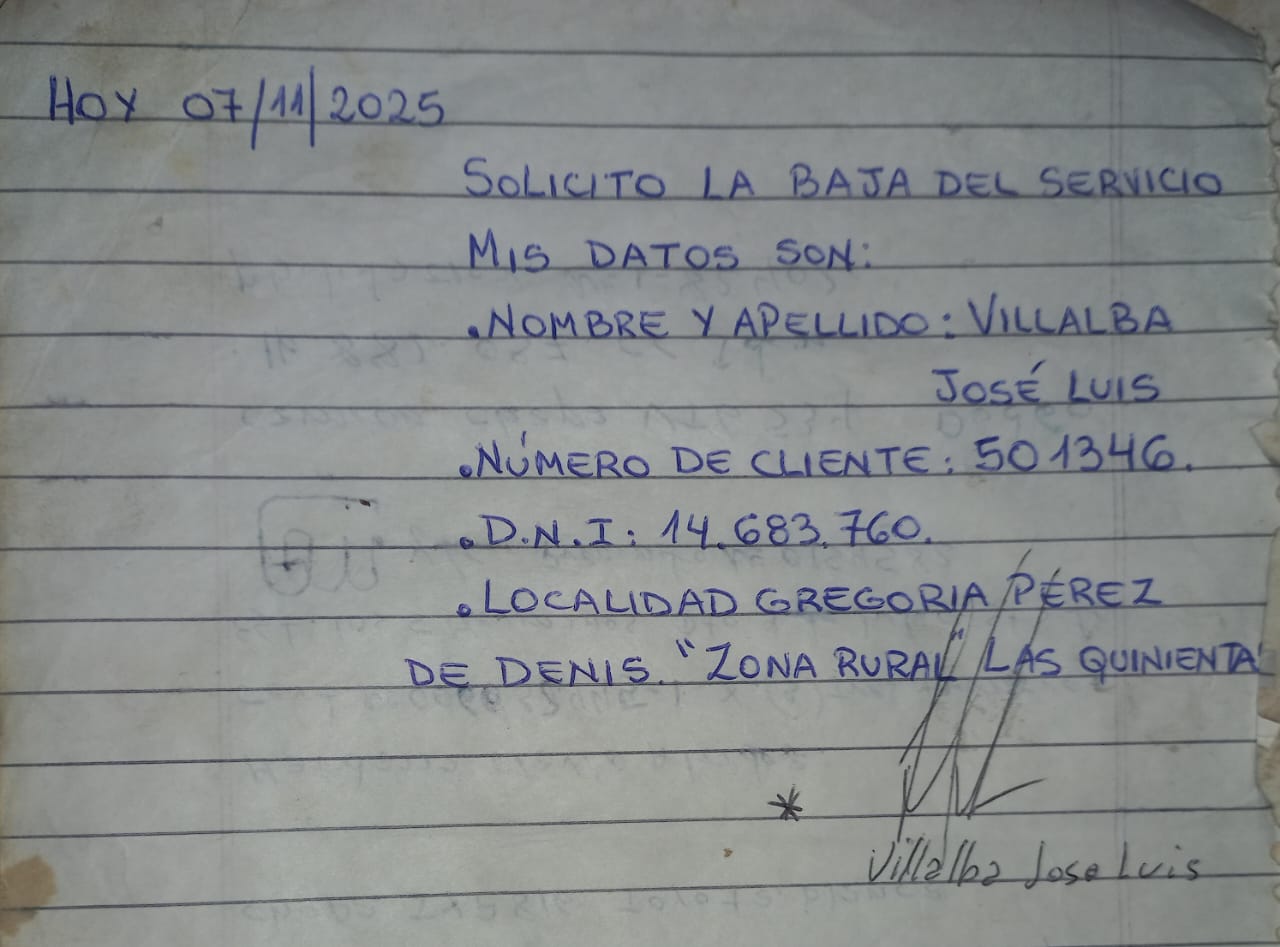 HOY 07/11/2025
SOLICITO LA BAJA DEL SERVICIO
MIS DATOS SON:
.NOMBRE Y APELLIDO: VILLALBA
JOSÉ LUIS
.NÚMERO DE CLIENTE: 501346.
.D.N.I: 14.683.760.
.LOCALIDAD GREGORIA PÉREZ
DE DENIS. "ZONA RURAL" LAS QUINIENTA
*
Villalba Jose Luis